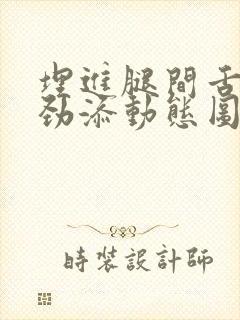 埋進腿間舌
勁添動態圖
時裝設計師